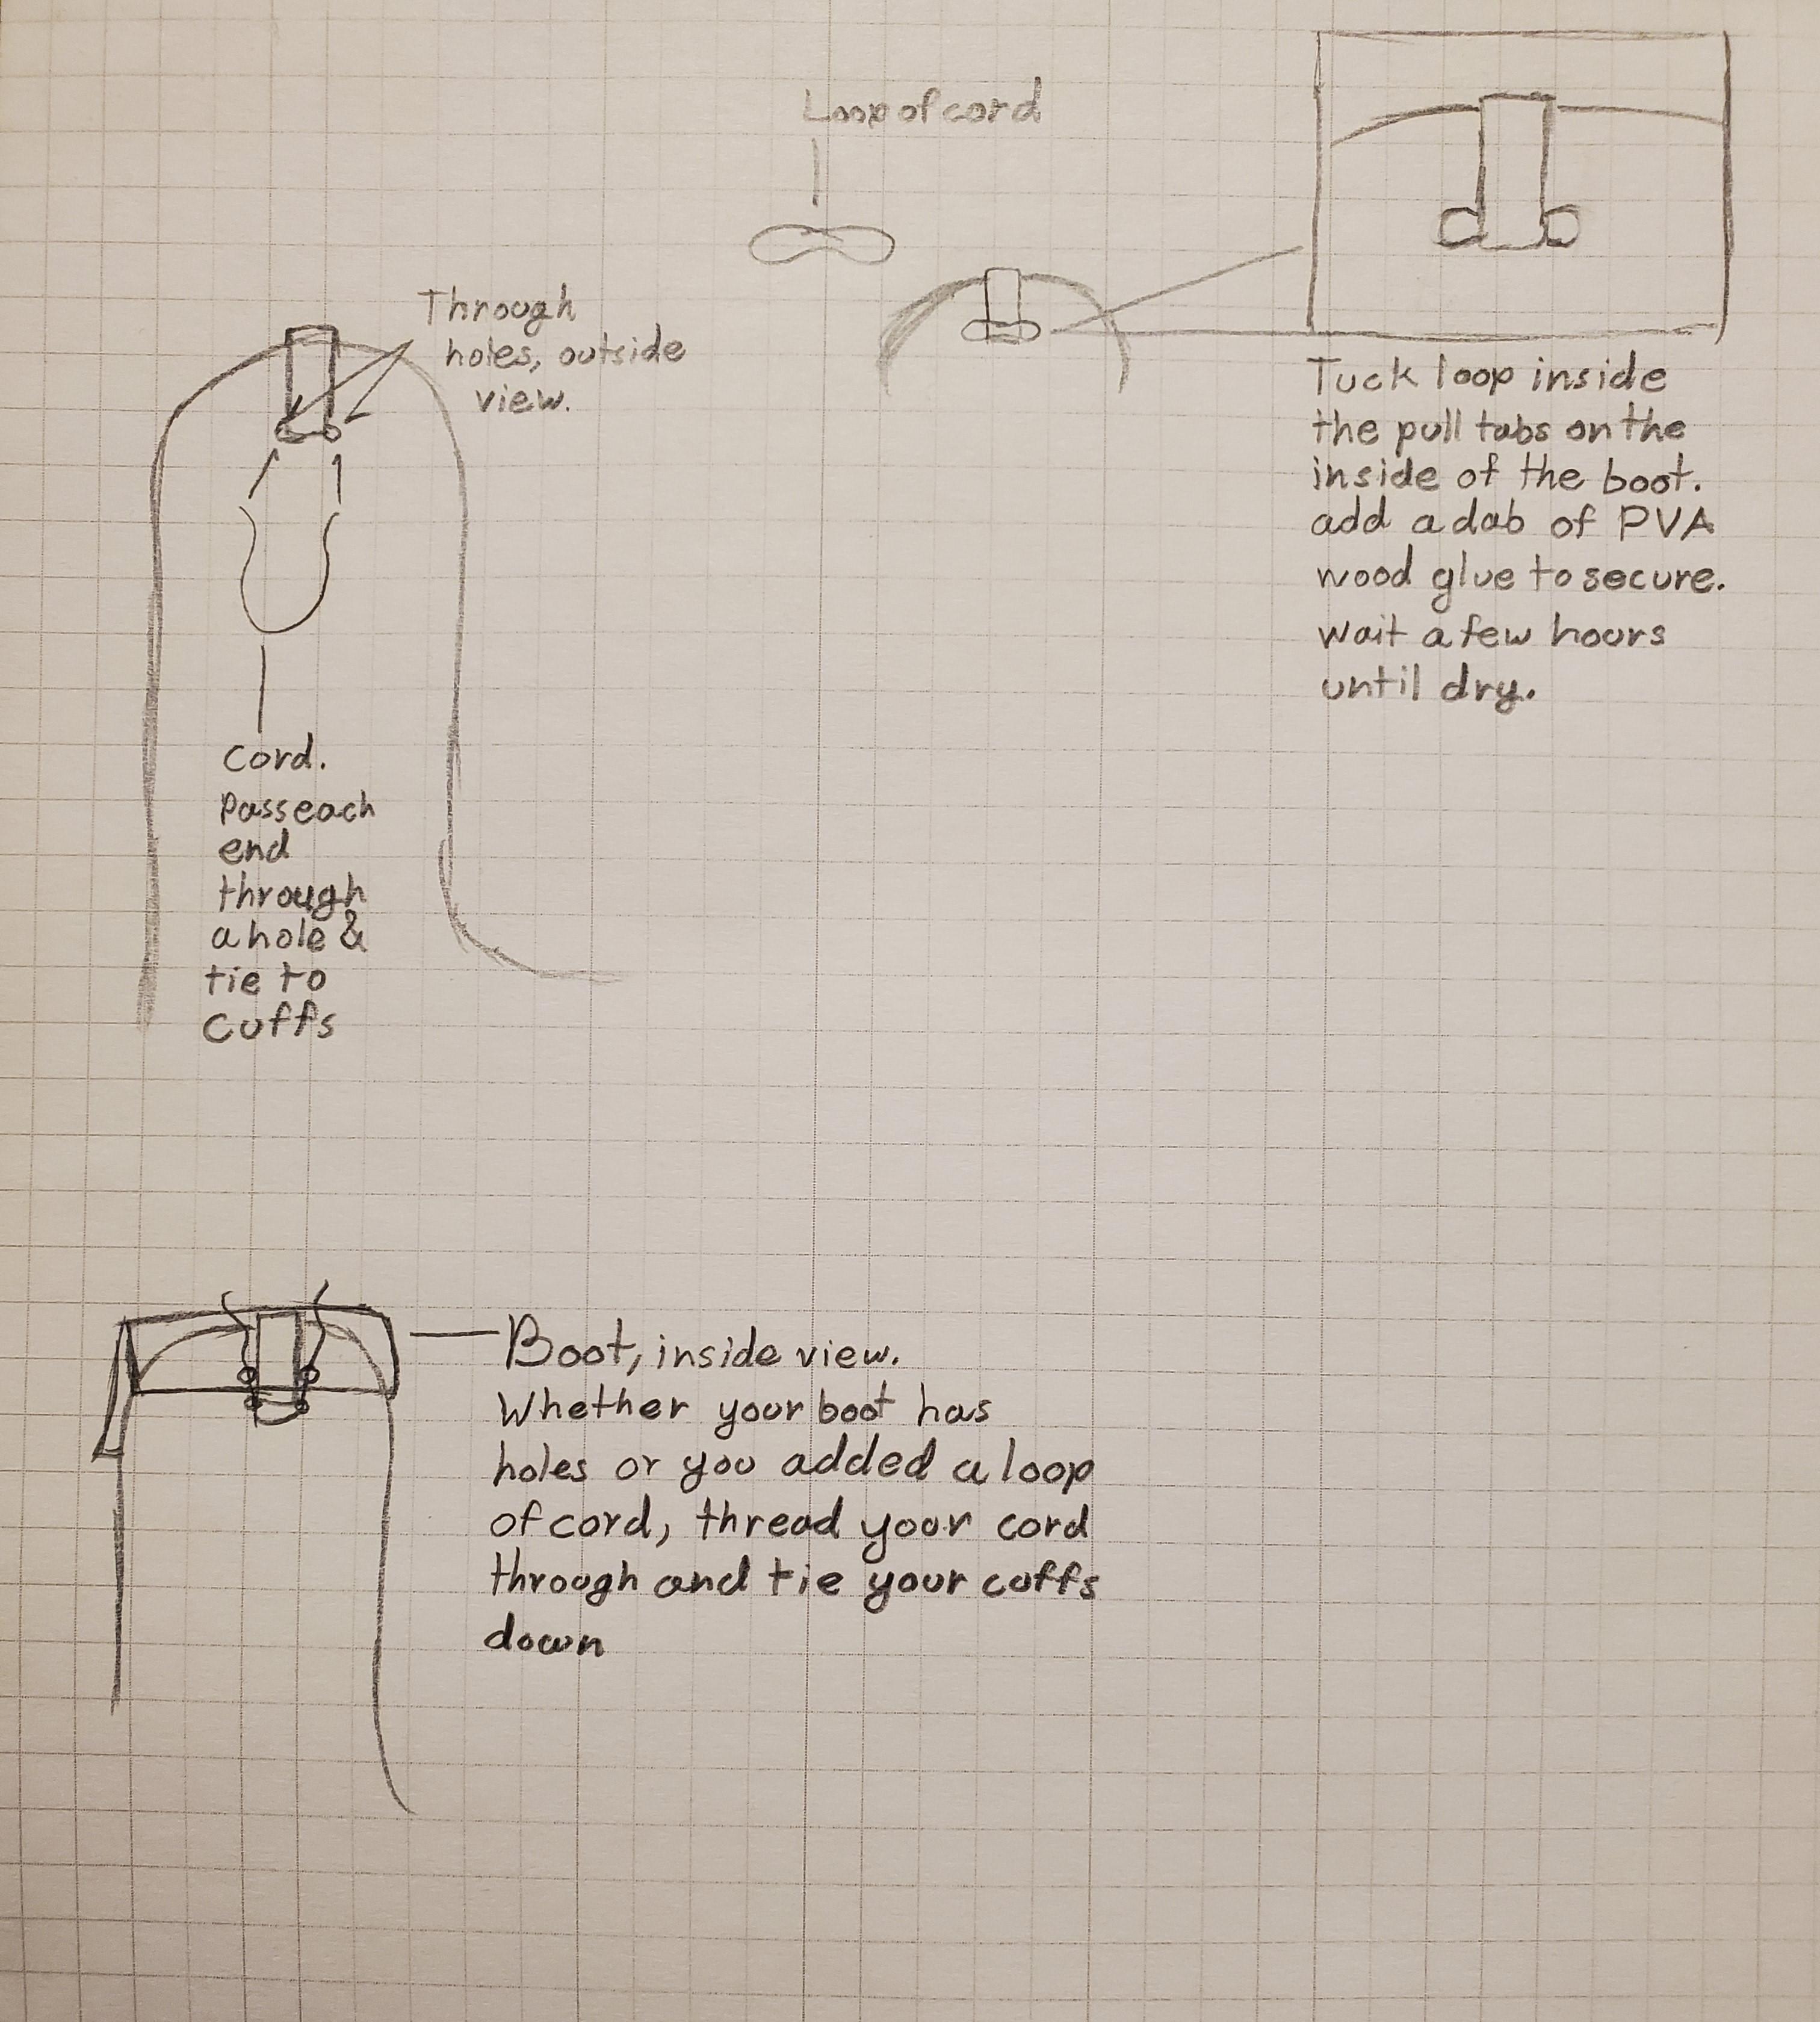 Loop of cord
Through
holes, outside
view.
Tuck loop inside
the pull tabs on the
inside of the boot.
add a dab of PVA
wood glue to secure.
wait a few hours
until dry.
Cord.
Pass each
end
through
a hole &
tie to
cuffs
Boot, inside view.
Whether your boot has
holes or you added a loop
of cord, thread your cord
through and tie your cuffs
down